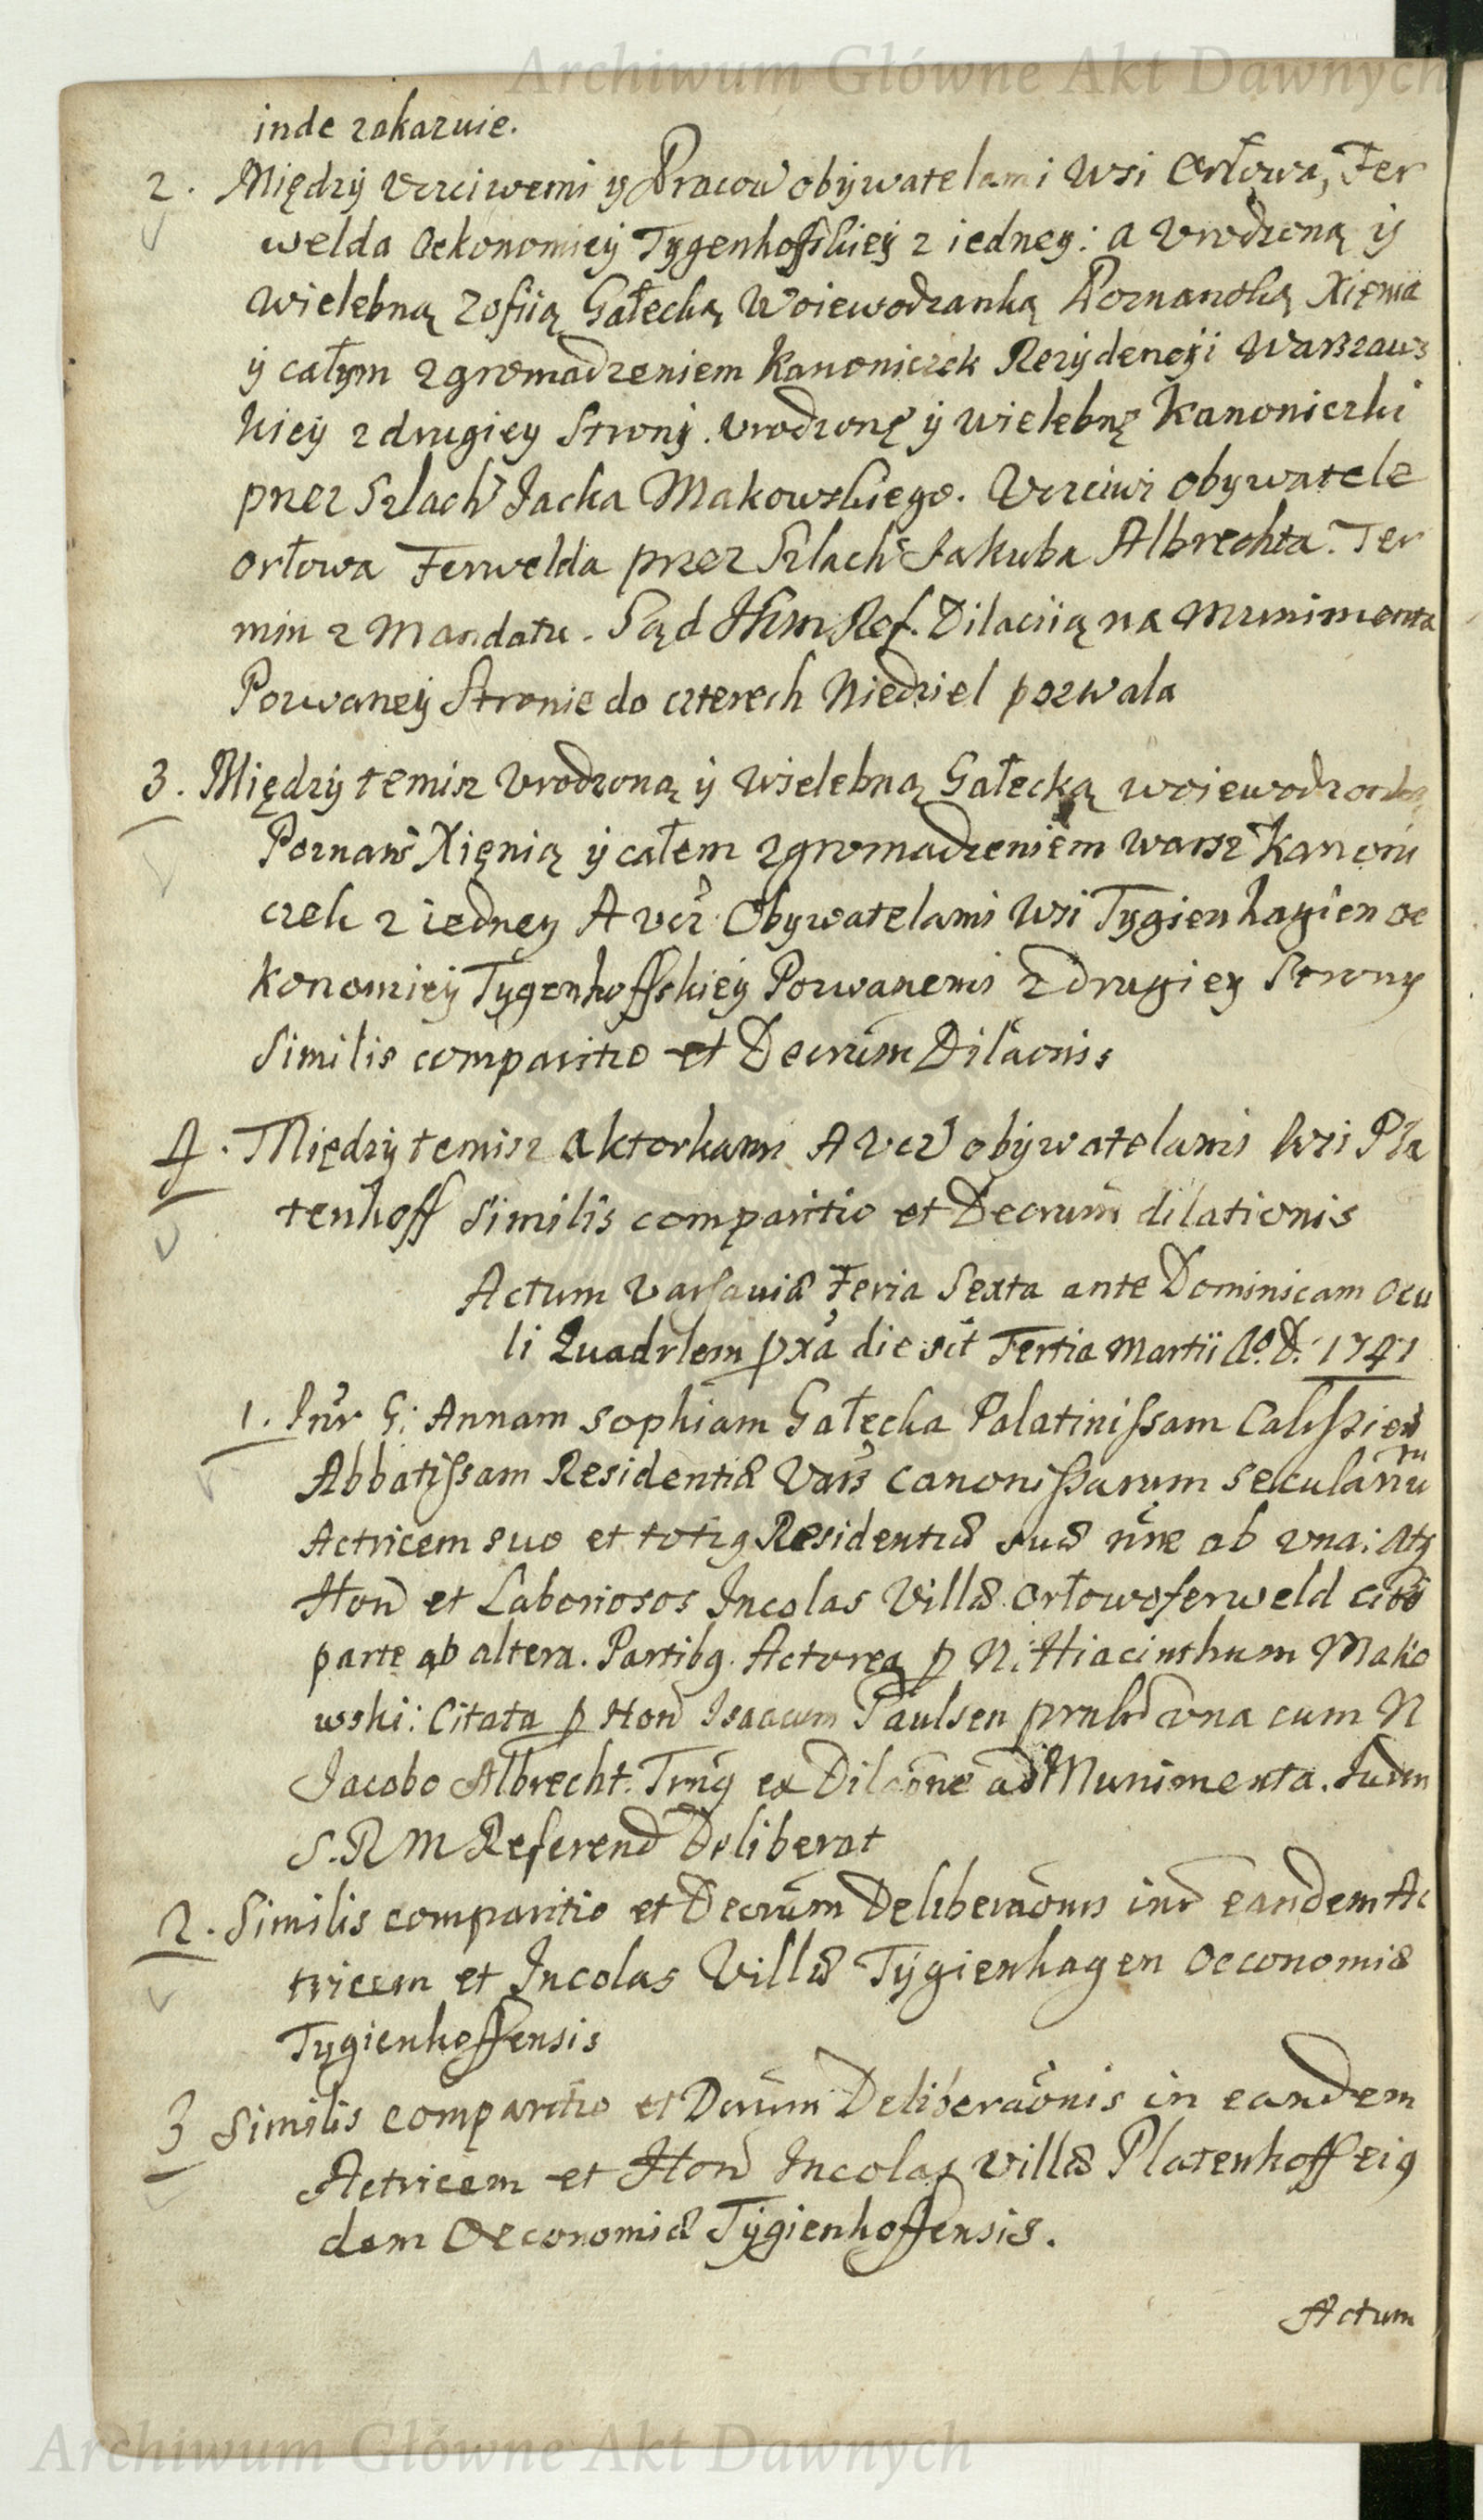 Archiwum Główne Akt Dawnych
inde zakazuie.
2. Między Uczciwemi y Pracow obywatelami Wsi Orłowa, Fer
welda Oekonomiey Tygenhoffskiey z iedney: a Urodzoną y
Wielebną Zofiią Gałecką Woiewodzanką Poznanską Xięnia
y całym zgromadzeniem Kanoniczek Rezydencyi Warszaws
kiey z drugiey Strony. Urodzonę y wielebnę Kanoniczki
przez Szlach Jacka Makowskiego. Uczciwi obywatele
Orłowa Ferwelda przez Szlach Jakuba Albrechta. Ter
min z Mandatu. Sąd JKM Ref. Dilaciią na Munimenta
Pozwaney Stronie do czterech Niedziel pozwala
3. Między temisz Urodzoną y Wielebną Gałecką woiewodzanką
Poznans Xięnią y całem zgromadzeniem warsz Kanoni
czek z iedney A ucz Obywatelami Wsi Tygienhagien oe
konomiey Tygenhoffskiey Pozwanemi z drugiey Strony
Similis comparitio et Decrum Dilaonis
4. Między temisz Aktorkami A ucz obywatelami Wsi Pla
tenhoff Similis comparitio et Decrum dilationis
Actum Varsaviæ Feria Sexta ante Dominicam Ocu
li Quadrlem pxa die sct Tertia Martii Ao. D. 1741
1. Inr G: Annam Sophiam Gałęcka Palatinissam Calissien
Abbatissam Residentiæ Vars Canonissarum Seculariu
Actricem suo et totiq Residentiæ suæ nine ab una: Atq
Hon et Laboriosos Incolas Villæ Orłowoferweld citos
parte ab altera. Partibq. Actorea p N. Hiacinthum Mako
wski: Citata p Hon Isaacum Paulsen una cum N
Jacobo Albrecht. Trnq ex Dilaone ad Munimenta. Judm
S. R M Referend Deliberat
2. Similis comparitio et Decrum Deliberaonis inr eandem Ac
tricem et Incolas Villæ Tygienhagen Oeconomiæ
Tygienhoffensis
3 Similis comparitio et Decrum Deliberaonis in eandem
Actricem et Hon Incolas Villæ Platenhoff eiq
dem Oeconomiæ Tygienhoffensis.
Actum
Archiwum Główne Akt Dawnych